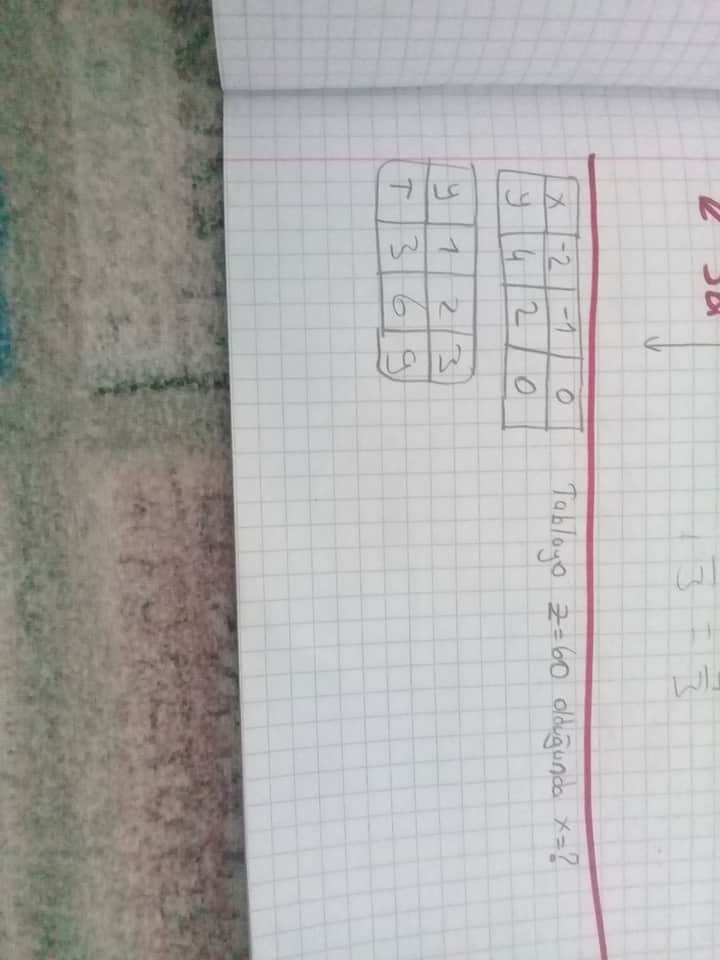 x -2 -1 0 Tabloya z=60 olduğunda x=?
y 4 2 0
y 1 2 3
T 3 6 9